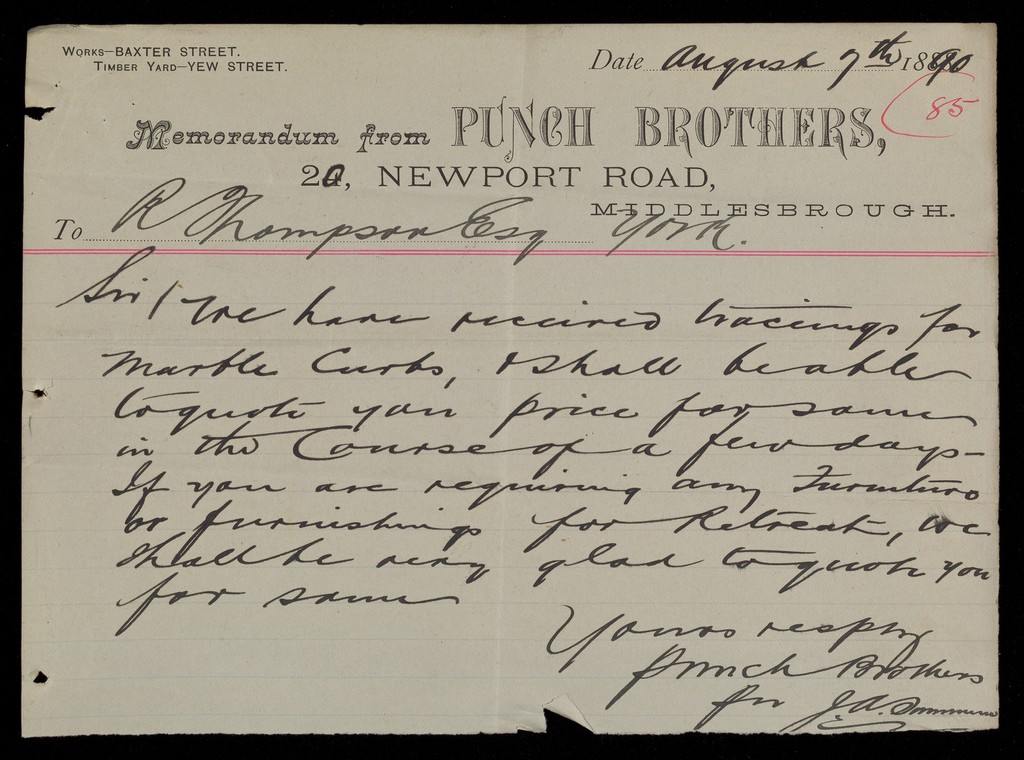 WORKS—BAXTER STREET.
TIMBER YARD—YEW STREET.
Date August 7th 1890
85
Memorandum from PUNCH BROTHERS,
20, NEWPORT ROAD,
MIDDLESBROUGH.
To R Thompson Esq York.
Sir/ We have received tracings for
Marble Curbs, & shall be able
to quote you price for same
in the Course of a few days—
If you are requiring any Furniture
or furnishings for Retreat, we
shall be very glad to quote you
for same
Yours respy
Punch Brothers
for J.A.